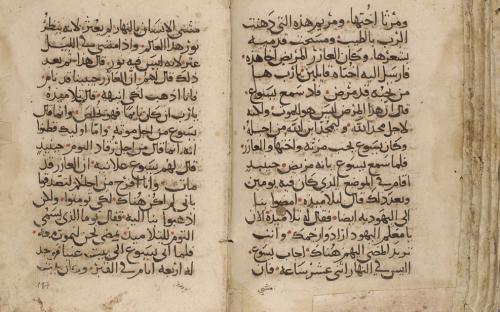 ومرثا اختها، ومريم هذه التي دهنت
الرب بالطيب ومسحت قدميه
بشعرها. وكان العازر المريض اخا هذه
فارسل اليه اختاه قايلتين يا رب هذا
من تحبه قد مرض. فلما سمع يسوع
قال ان هذا المرض ليس هو للموت ولكنه
لاجل مجد الله وليتمجد ابن الله من اجله
وكان يسوع يحب مرثه واختها والعازر
فلما سمع يسوع بانه مريض حينيد
اقام في الموضع الذي كان فيه يومين
وبعد ذلك قال لتلاميذه امضوا بنا
الى اليهوديه ايضا فقال له تلاميذه الان
يا معلم اليهود ارادوا رجمك وانت
تريد المضي اليهم هناك اجاب يسوع
اليس في النهار اثنى عشر ساعه فان
مشي
مشى الانسان بالنهار لم يعثر لانه ينظر
نور هذا العالم واذا مشى في الليل
عثر لانه ليس فيه نور قال هذا ثم بعد
ذلك قال لهم ان العازر حبيبنا قد نام
فانا اذهب لكي انبهه قال تلاميذه
يا رب ان كان نايما فهو يخلص وانما قال
يسوع من اجل موته واما اوليك فظنوا
انه انما قال من اجل رقاد النوم حينيد
قال لهم يسوع علانيه ان العازر قد
مات وانا افرح من اجلكم لتصدقوا
باني لم اكن هناك لكي تومنوا ولكن
اذهبوا بنا اليه فقال توما الذي يسمى
التوم للتلاميذ نمضي نحن لنموت معه
فلما اتى يسوع الى بيت عنيا فوجد
له اربعه ايام في القبر وكانت بيت